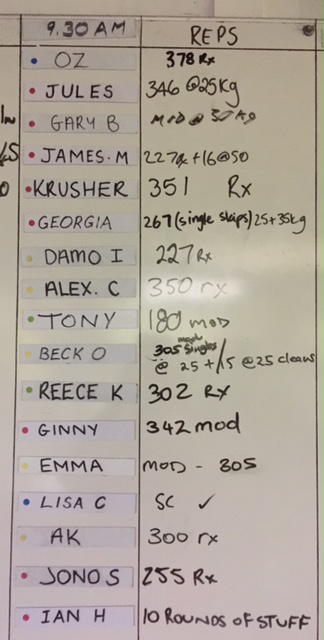 9.30 AM REPS
OZ 378 Rx
JULES 346 @25kg
GARY B MOD @ 30 kg
JAMES.M 227 +16@50
KRUSHER 351 Rx
GEORGIA 267 (single skips) 25+35kg
DAMO I 227 Rx
ALEX. C 350 rx
TONY 180 MOD
BECK O 305 singles
@ 25 +/15 @25 cleans
REECE K 302 Rx
GINNY 342 mod
EMMA MOD - 305
LISA C SC ✓
AK 300 rx
JONO S 255 Rx
IAN H 10 ROUNDS OF STUFF